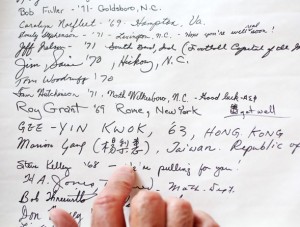 Bob Fuller - '71 - Goldsboro, N.C.
Carolyn '69 - Hampton, Va.
'71 - Lexington, N.C. - Hope you're well real soon!
Jeff '71 - South Bend, Ind (Football Capitol of
Jim Sain '70, Hickory, N.C.
Tom Woodruff '70
Tom Hutchinson, '71, North Wilkesboro, N.C. - Good luck
Roy Grant - '69 Rome, New York get well
GEE-YIN KWOK, 63, HONG KONG
Marion Yang (楊), Taiwan. Republic of
Steve Kelley '68 — We're pulling for you!
H.A. Jones, Math. Dept.
Bob
Jon